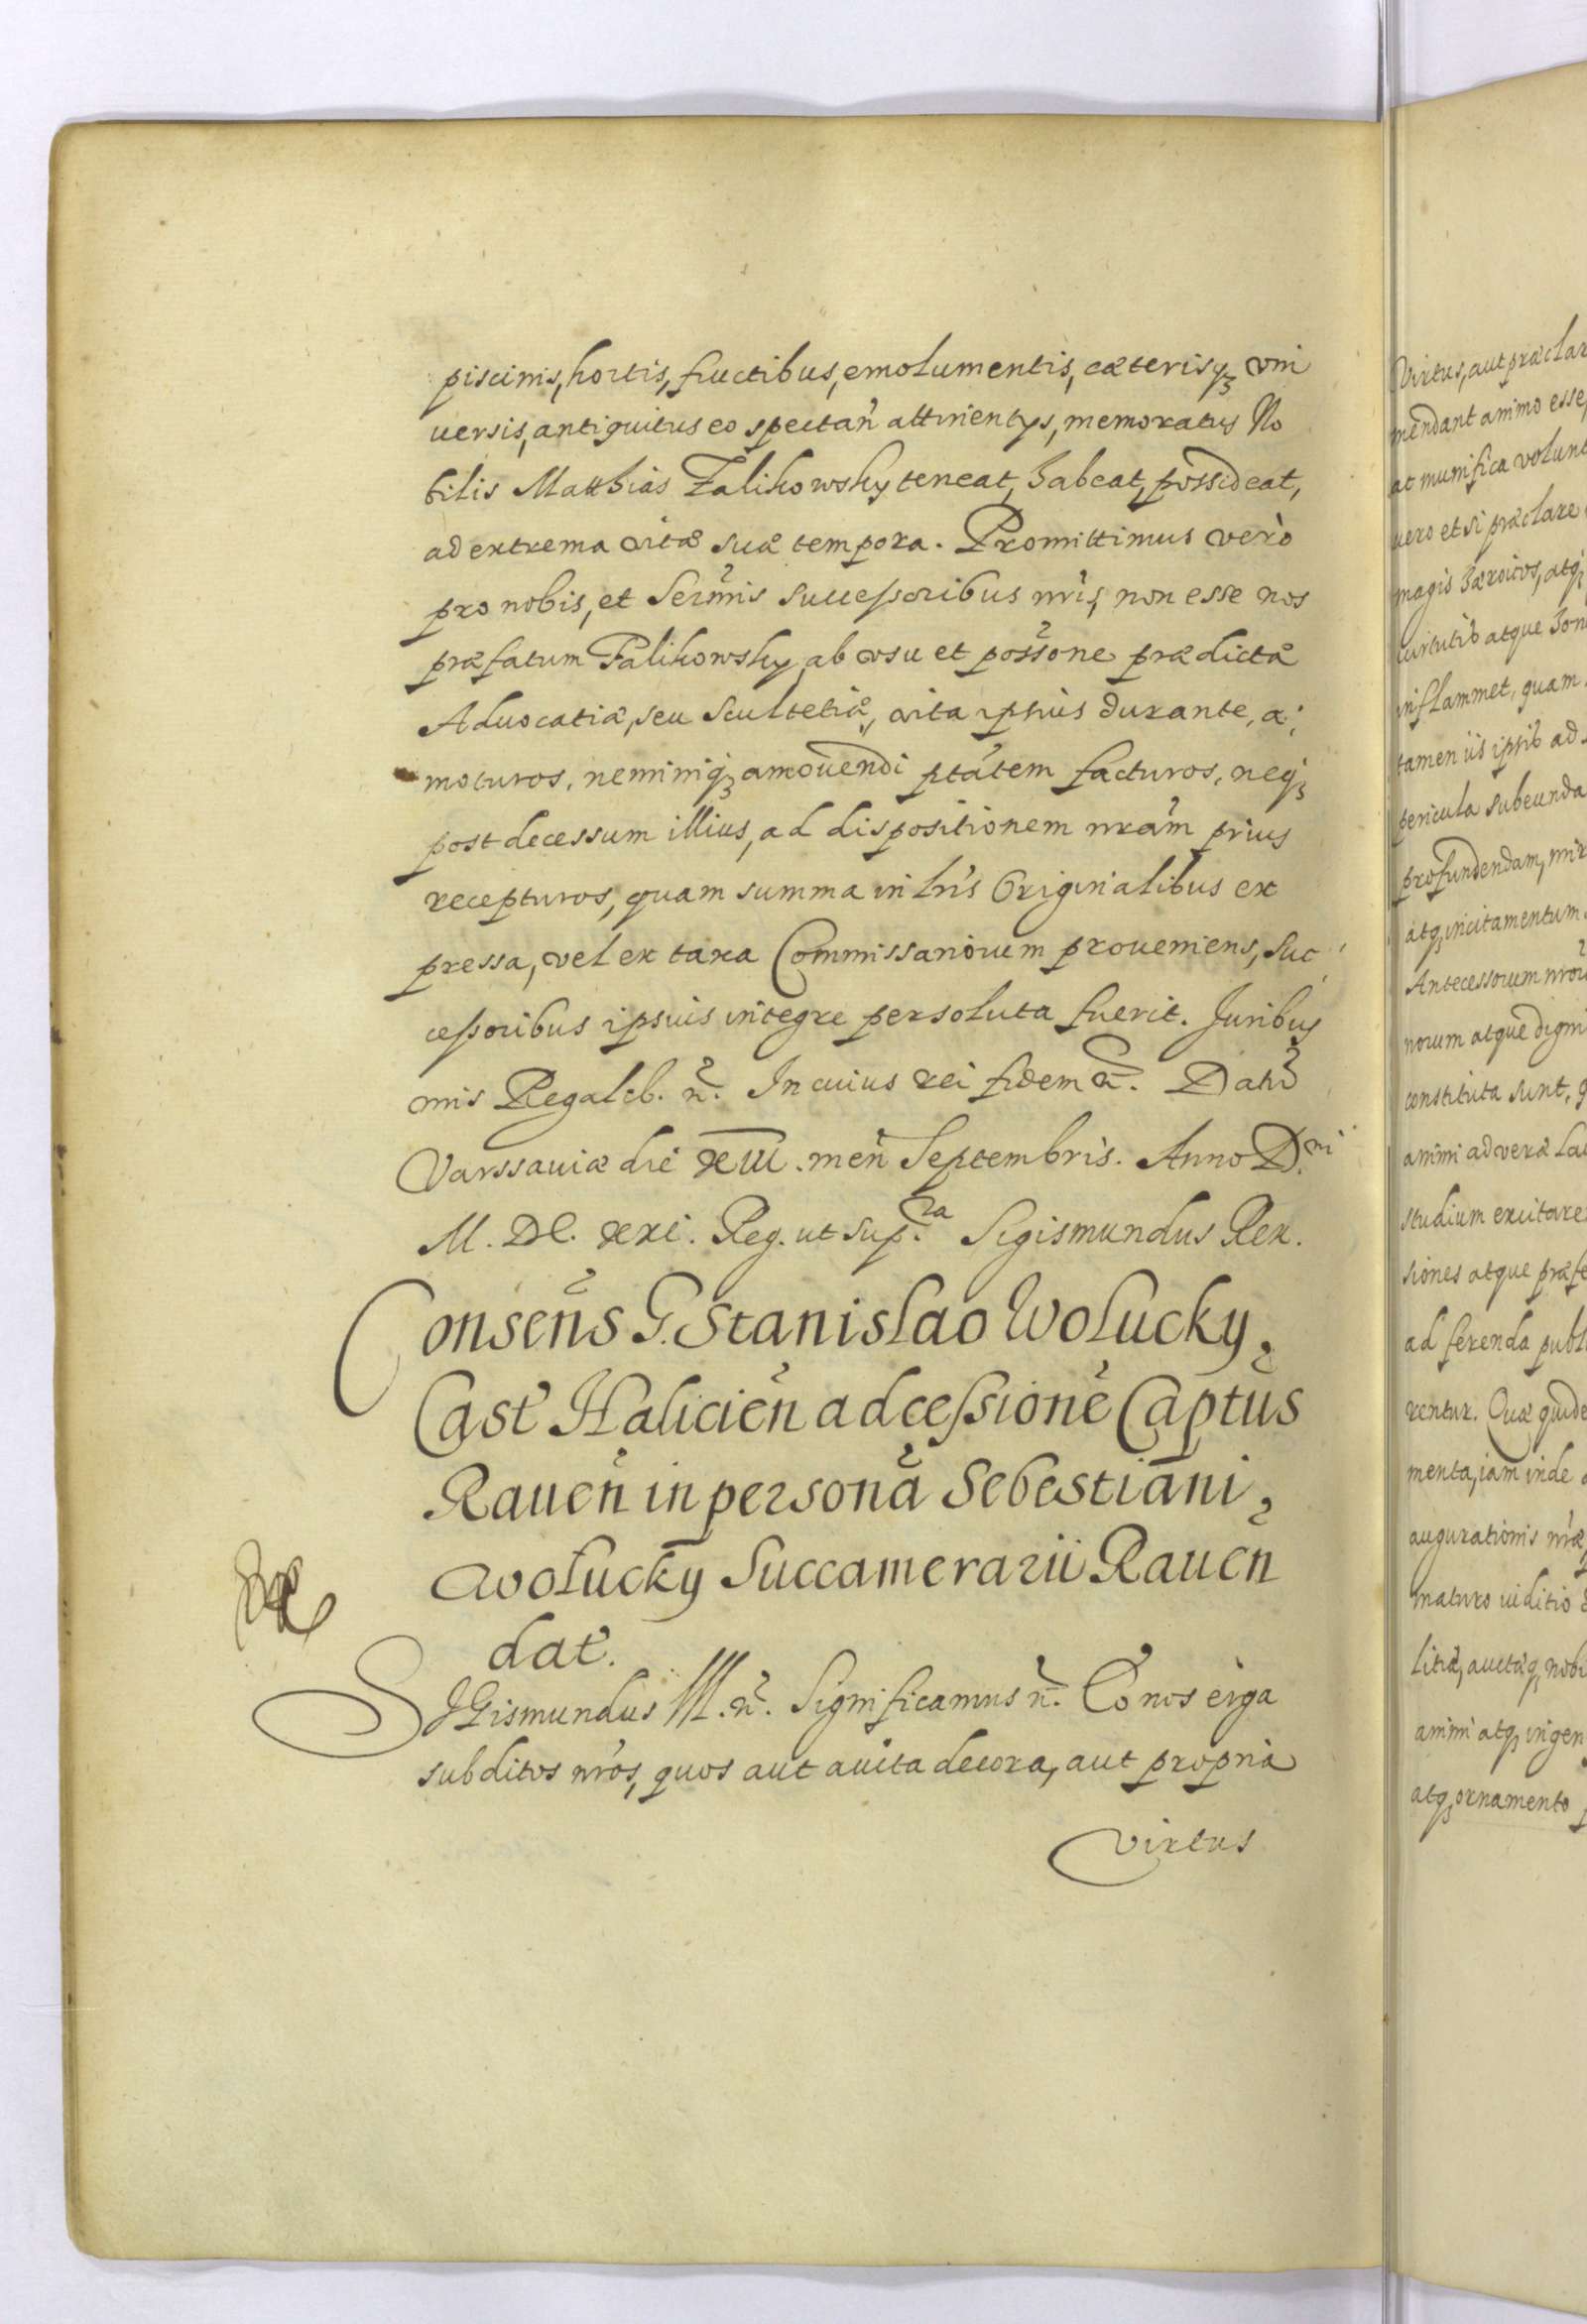 piscinis, hortis, fructibus, emolumentis, cæterisqꝫ vni
uersis, antiquitus eo spectan̄ attinentys, memoratus No
bilis Matthias Falikowsky teneat, habeat, possideat,
ad extrema vitæ suæ tempora. Promittimus verò
pro nobis, et Ser̄mis Successoribus nr̄is, non esse nos
præfatum Falikowsky ab vsu et poss̄one prædictæ
Aduocatiæ, seu Scultetiæ, vita ipsius durante, a
moturos, neminiqꝫ amouendi ptātem facturos, neqꝫ
post decessum illius, ad dispositionem nrām prius
recepturos, quam summa in lrīs Originalibus ex
pressa, vel ex taxa Commissariorum proueniens, Suc
cessoribus ipsius integre persoluta fuerit. Juribus
Regalib. In cuius rei fidem Datū
Varssauiæ die XIII. men̄ Septembris. Anno D.ni
M. DC. XXI. Reg. ut sup.ra Sigismundus Rex.
Consen̄s G. Stanislao Wolucky,
Cast̄ Halicien̄ ad cessionē Captūs
Rauen̄ in personā Sebestiani,
Wolucky Succamerarii Rauen̄
dat̄.
SIGismundus III. Significamus Eo nos erga
subditos nr̄os, quos aut auita decora, aut propria
virtus
Virtus, aut præclar
mendant animo esse
at munifica volunt
uero etsi præclare
magis hæroicos, atqꝫ
uirtutib atque hon
inflammet, quam
tamen iis ipsib ad
pericula subeunda
profundendam, mir
atqꝫ incitamentum
Antecessorum nrōr
norum atque digni
constituta sunt, q
animi ad veræ lau
studium excitare
siones atque præfe
ad ferenda publ
rentur. Quæ quide
menta, iam inde
augurationis nr̄æ
maturo iuditio
litiæ, auctaqꝫ nobi
animi atqꝫ ingen
atqꝫ ornamento p